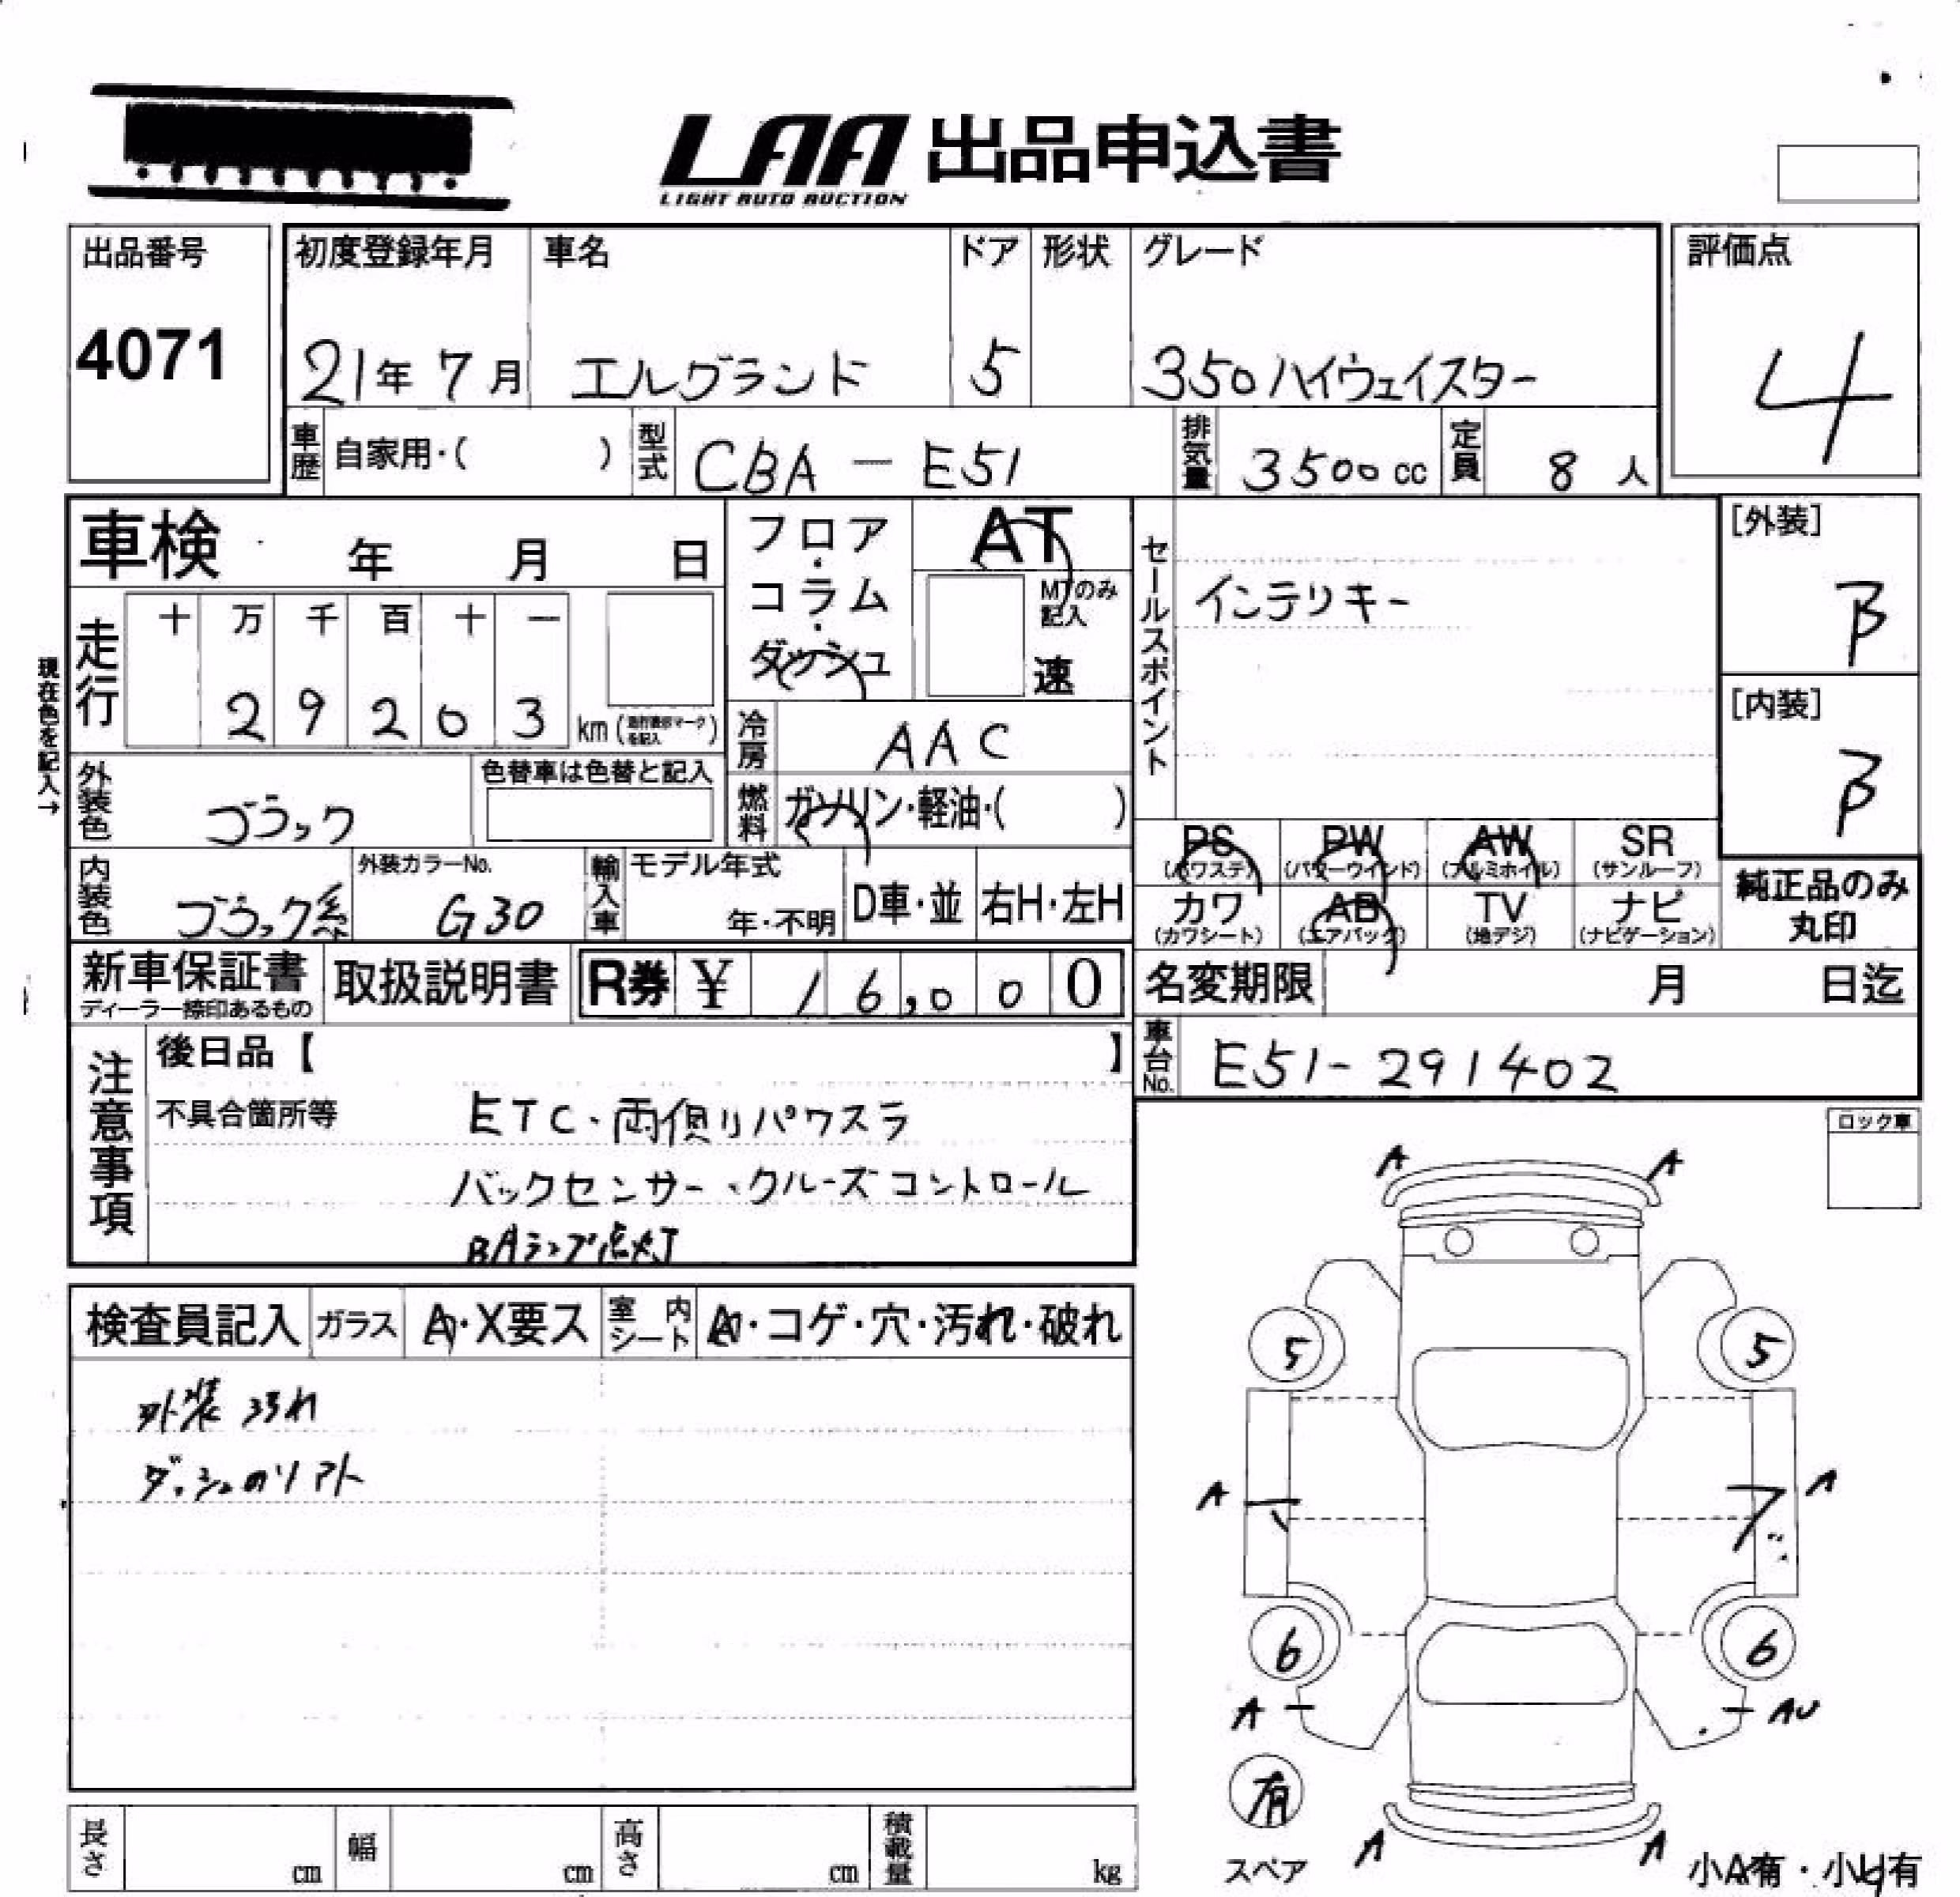 LAA 出品申込書
LIGHT AUTO AUCTION
出品番号
4071
初度登録年月
21年 7月
車名
エルグランド
ドア
5
形状
グレード
350ハイウェイスター
評価点
4
車歴 自家用・( )
型式 CBA - E51
排気量 3500 cc
定員 8 人
車検 年 月 日
フロア・コラム・ダッシュ
AT
MTのみ記入
速
セールスポイント
インテリキー
[外装]
B
[内装]
B
現在色を記入→
走行
十 万 千 百 十 一
2 9 2 0 3 km
冷房 AAC
外装色 ブラック
色替車は色替と記入
燃料 ガソリン・軽油・( )
PS (パワステ)
PW (パワーウインド)
AW (アルミホイル)
SR (サンルーフ)
カワ (カワシート)
AB (エアバック)
TV (地デジ)
ナビ (ナビゲーション)
純正品のみ
丸印
内装色 ブラック系
外装カラーNo.
G30
輸入車
モデル年式
年・不明
D車・並
右H・左H
新車保証書
ディーラー捺印あるもの
取扱説明書
R券 ¥ 16,000
名変期限 月 日迄
車台No. E51-291402
注意事項
後日品【 】
不具合箇所等
ETC・両側リパワスラ
バックセンサー・クルーズコントロール
BAランプ点灯
ロック車
検査員記入
ガラス A・X要ス
室内シート A・コゲ・穴・汚れ・破れ
外装 汚れ
A A
5 5
A A
6 6
A AU
有
スペア
A A
小A有・小U有
長さ cm
幅 cm
高さ cm
積載量 kg